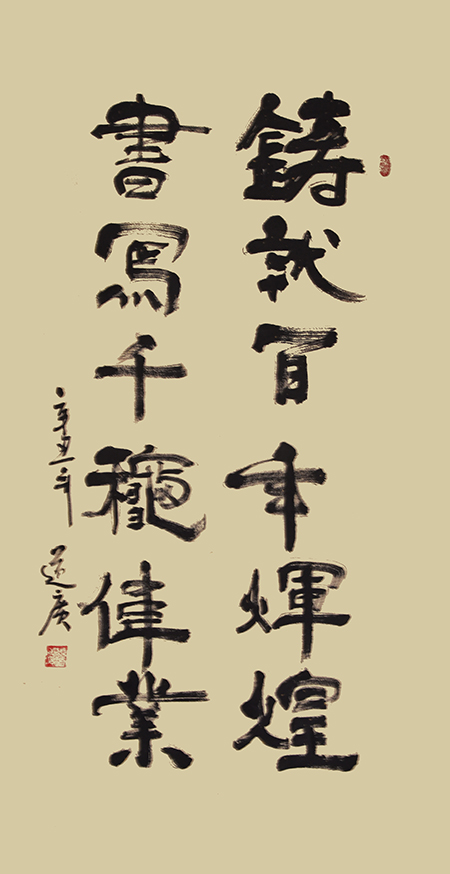 鑄就百年輝煌
書寫千穐偉業
辛丑年 道廣